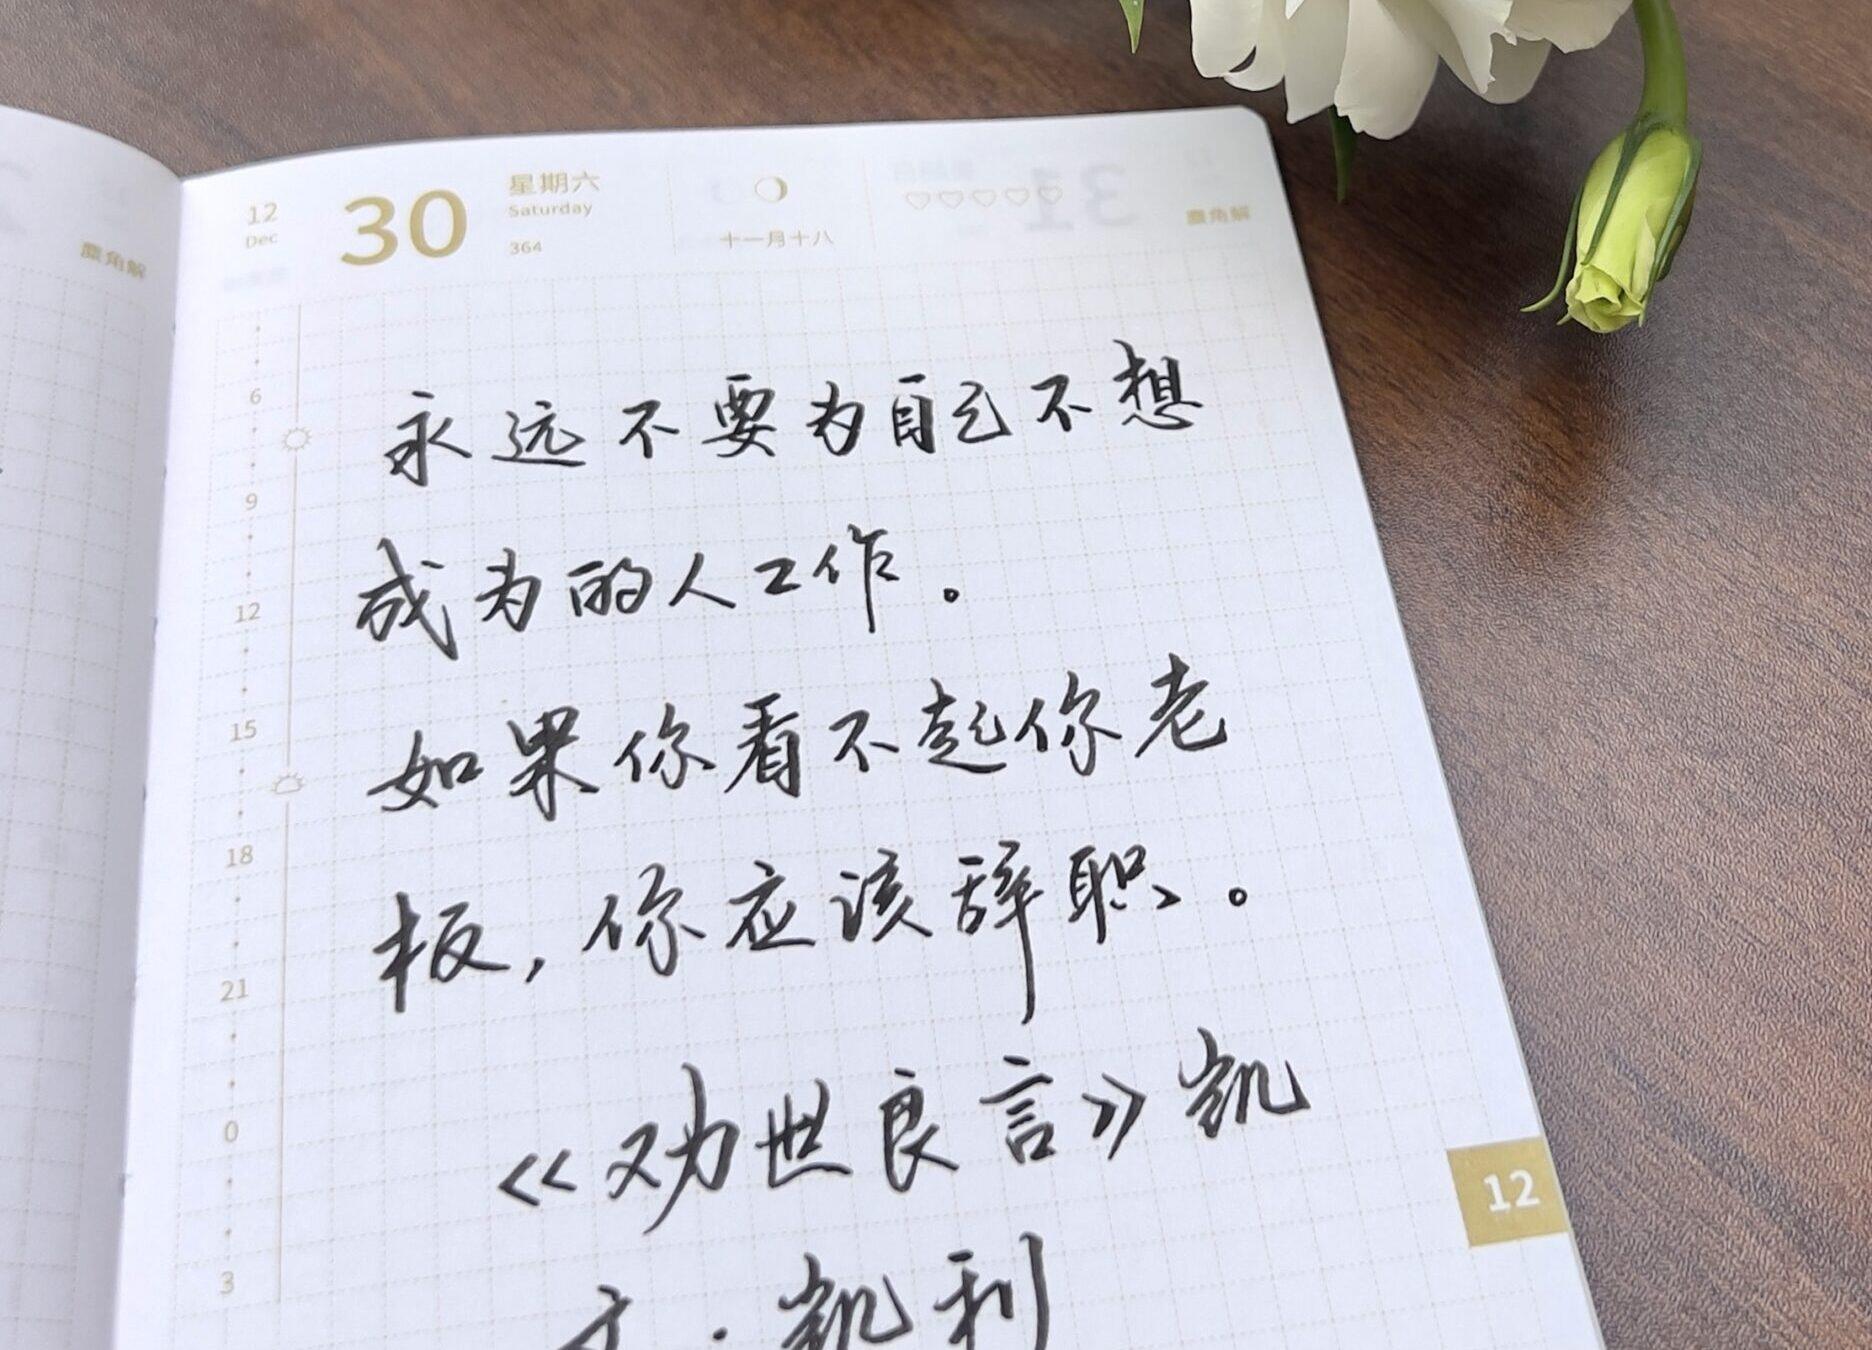 12
Dec
30
星期六
Saturday
364
十一月十八
麋角解
麋角解
31
6
9
12
15
18
21
0
3
永远不要为自己不想
成为的人工作。
如果你看不起你老
板,你应该辞职。
《劝世良言》凯
文·凯利
12